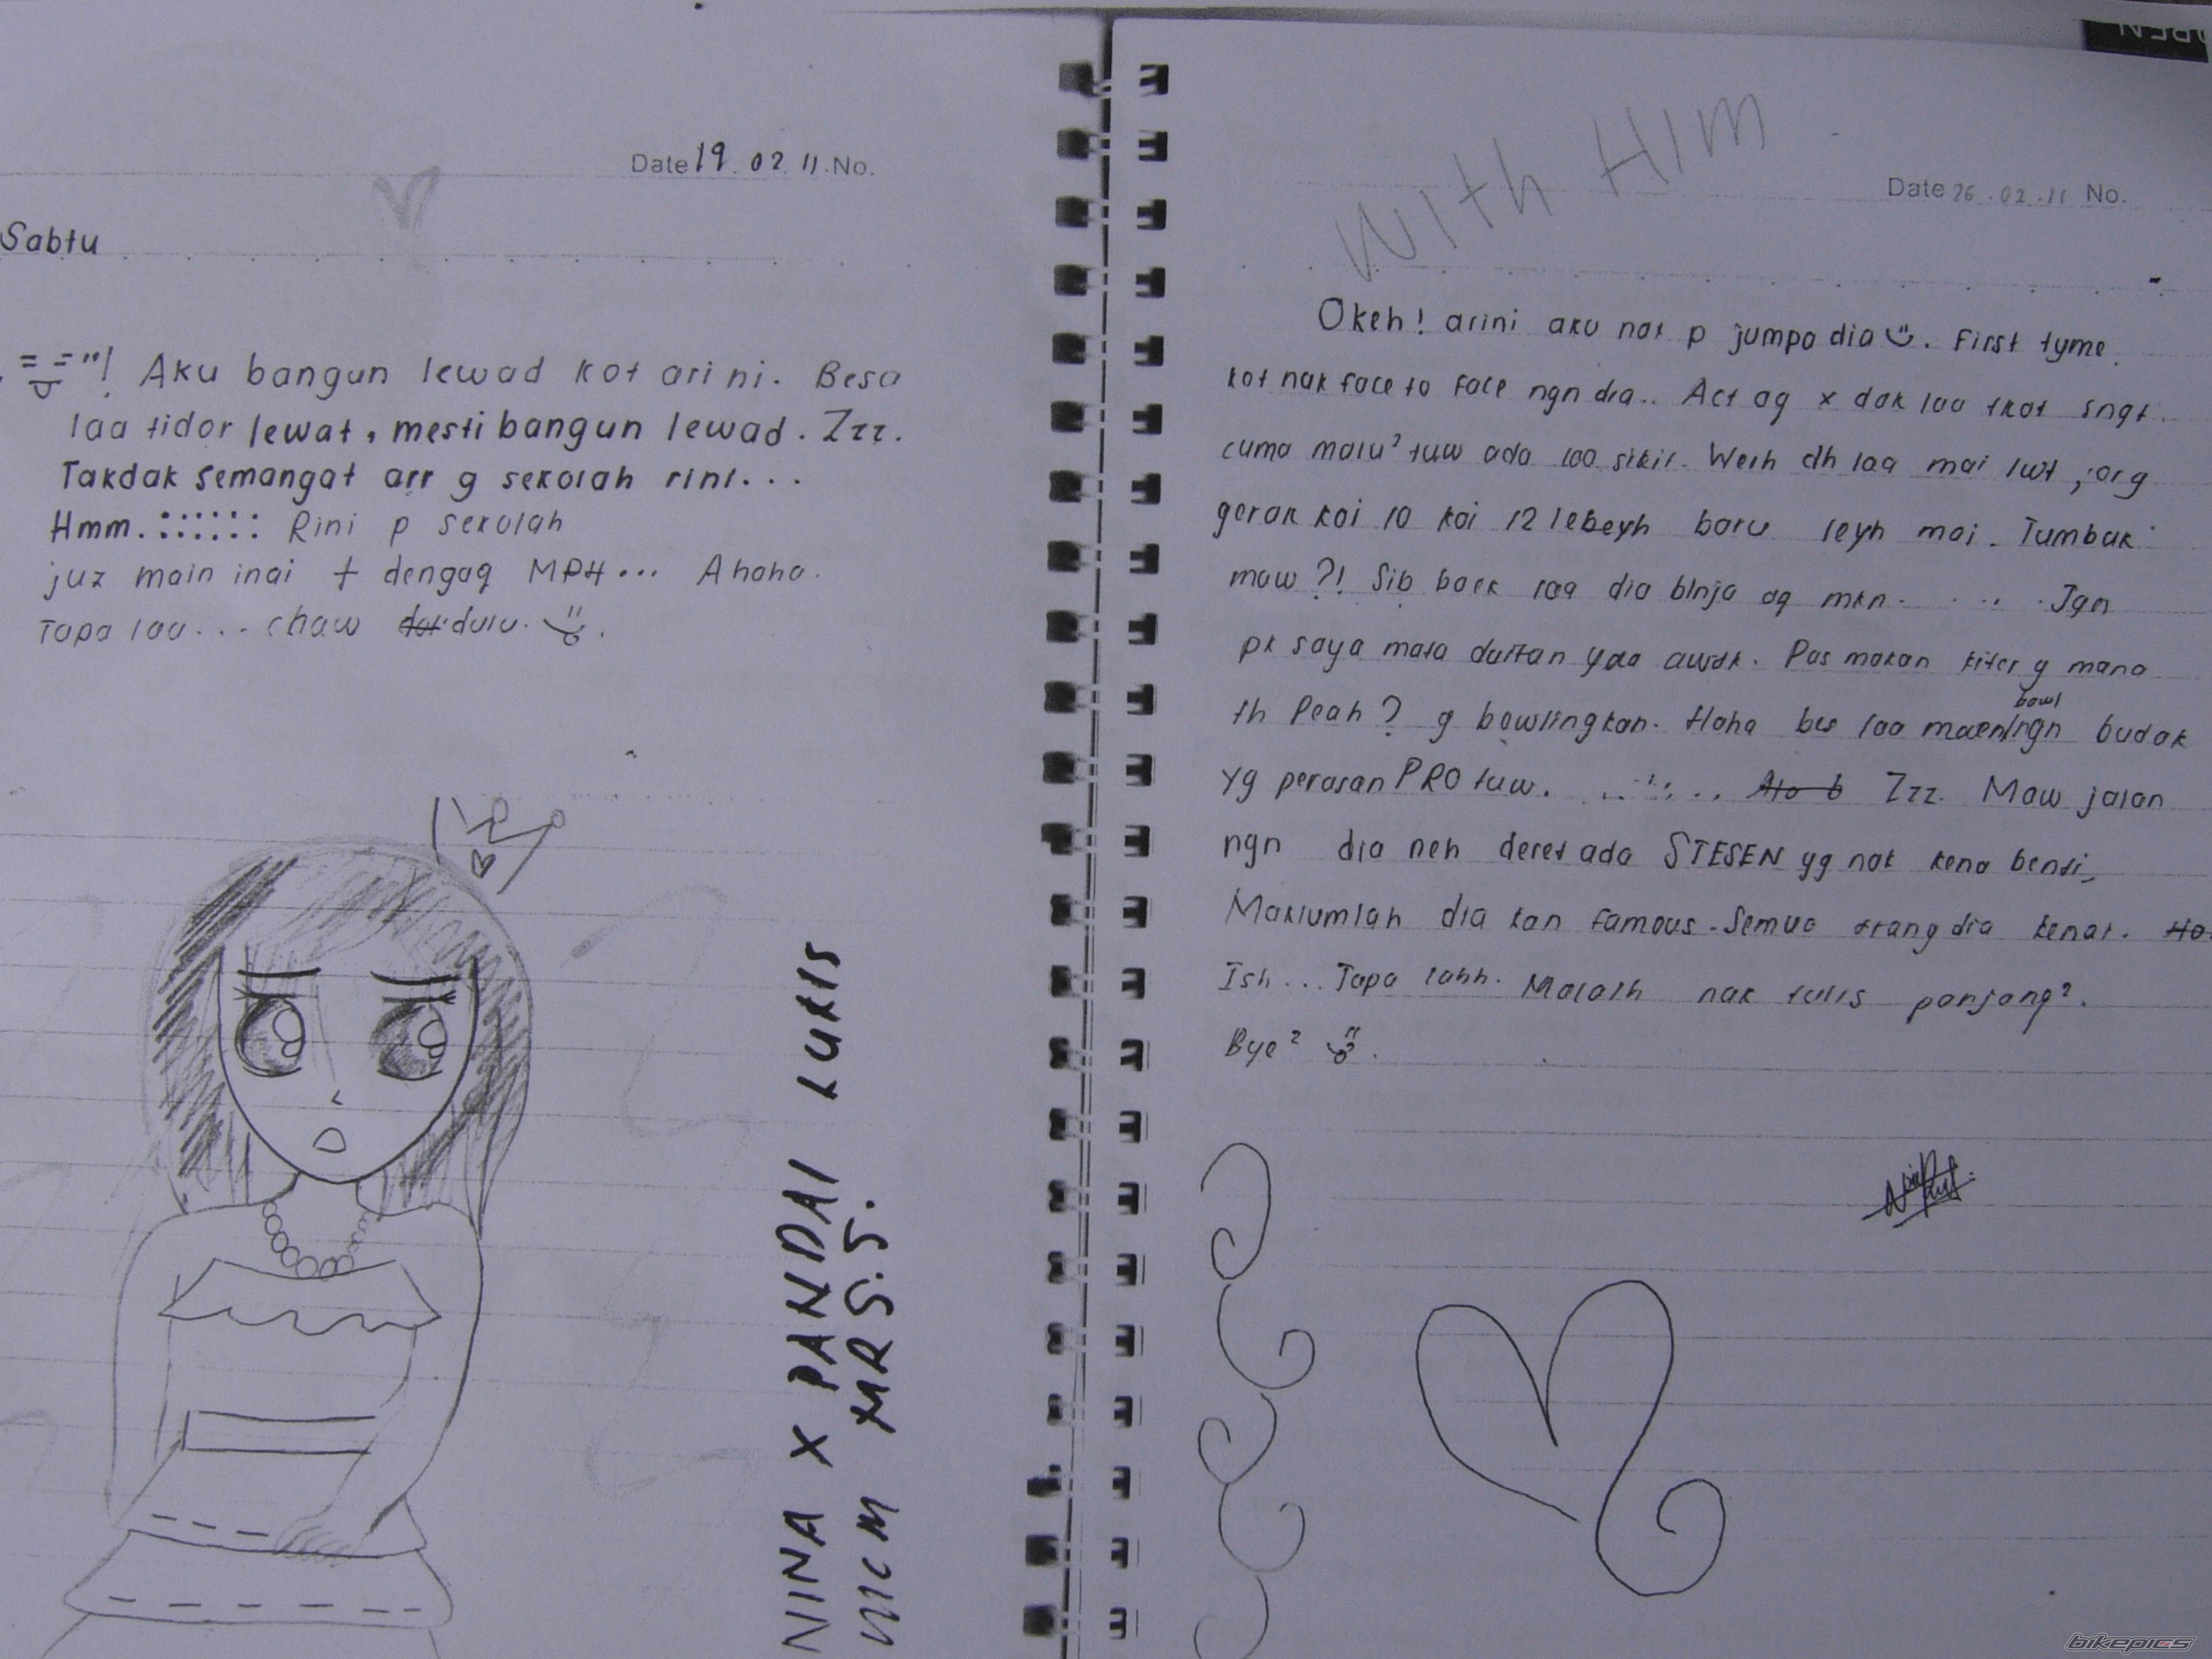 Date 19.02.11 No.
Sabtu
Aku bangun lewad kot arini. Besa
laa tidor lewat, mesti bangun lewad. Zzz.
Takdak semangat arr g sekolah rini...
Hmm. :::::: Rini p sekolah
juz main inai + dengaq MPH... Ahaha.
Tapa laa... chaw dulu.
NINA X PANDAI LUKIS
MCM MR S.S.
With HIM
Date 26.02.11 No.
Okeh! arini aku nak p jumpa dia. First tyme
kot nak face to face ngn dia.. Act aq x dak laa tkot sngt.
cuma malu² tuw ada laa sikit. Weih dh laa mai lwt, org
gerak kol 10 kol 12 lebeyh baru leyh mai. Tumbuk
maw?! Sib baek laa dia blnja aq mkn. .... Jgn
pk saya mata duitan yaa awak. Pas makan kiter g mana
th Peah? g bowling kan. Haha bes laa maen bowl ngn budak
yg perasan PRO tuw. ....... Zzz. Maw jalan
ngn dia neh deret ada STESEN yg nak kena benti,
Maklumlah dia kan famous. Semua orang dia kenal.
Ish... Tapa lahh. Malaih nak tulis panjang².
Bye²
bikepics